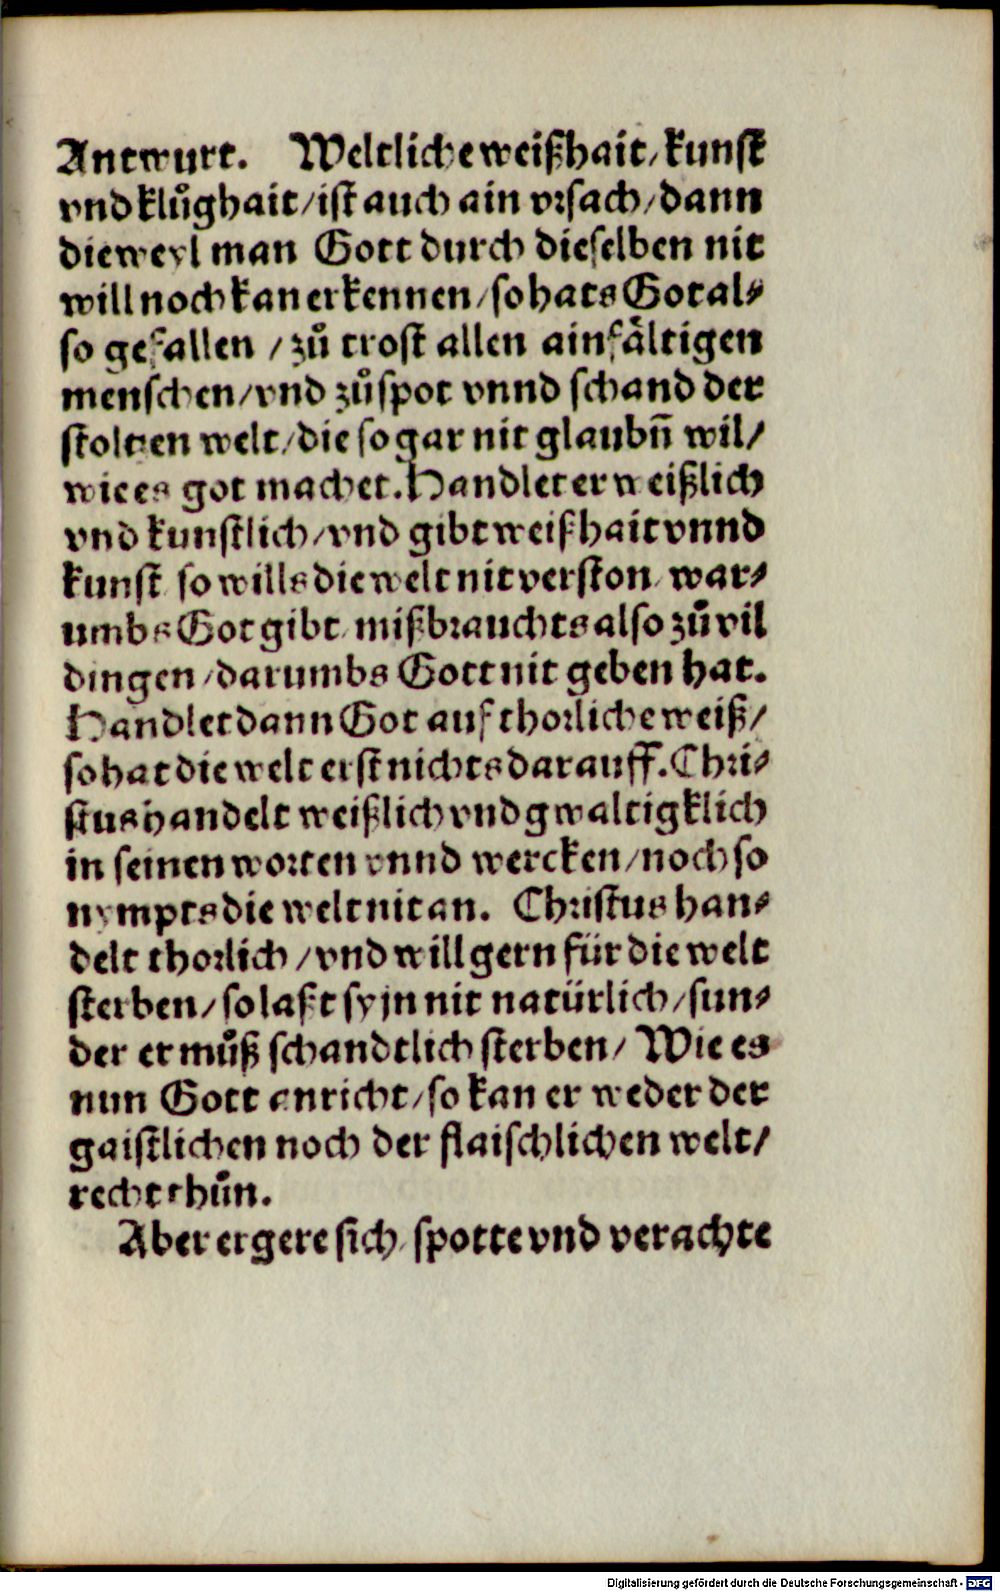 Antwurt. Weltliche weißhait/kunst
vnd klůghait/ist auch ain vrsach/dann
dieweyl man Gott durch dieselben nit
will noch kan erkennen/so hats Got al⸗
so gefallen/zů trost allen ainfältigen
menschen/vnd zů spot vnnd schand der
stoltzen welt/die so gar nit glaubñ wil/
wie es got machet. Handlet er weißlich
vnd kunstlich/vnd gibt weißhait vnnd
kunst so wills die welt nit verston/war⸗
umbs Got gibt/mißbrauchts also zů vil
dingen/darumbs Gott nit geben hat.
Handlet dann Got auf thorliche weiß/
so hat die welt erst nichts darauff. Chri⸗
stus handelt weißlich vnd gwaltigklich
in seinen worten vnnd wercken/noch so
nympts die welt nit an. Christus han⸗
delt thorlich/vnd will gern für die welt
sterben/so laßt syjn nit natürlich/sun⸗
der er můß schandtlich sterben/Wie es
nun Gott anricht/so kan er weder der
gaistlichen noch der flaischlichen welt/
recht thůn.
Aber ergere sich/spotte vnd verachte
Digitalisierung gefördert durch die Deutsche Forschungsgemeinschaft - DFG